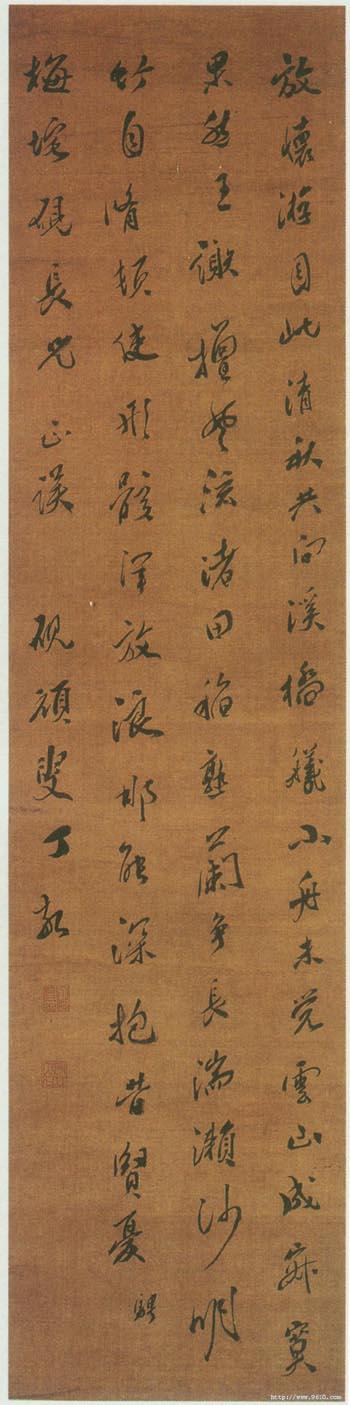 放懷游目此清秋共向溪橋艤小舟未覺雲山成寂寞
果然王謝擅風流渚田稻熟蘭爭長湍瀨沙明
竹自脩頓使形骸渾放浪那能深抱昔賢憂 騁
梅垞硯長兄正 硯頑叟丁敬
http://www.9610.com